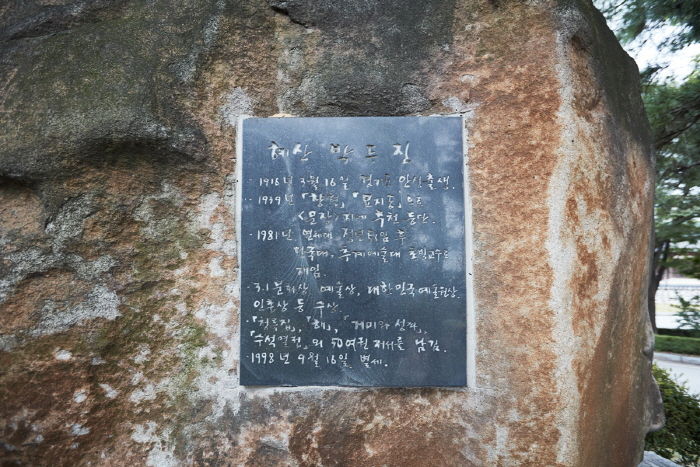 혜산 박두진
· 1916년 3월 10일 경기도 안성출생.
· 1939년 「향현」, 「묘지송」으로
<문장>지에 추천 등단.
· 1981년 연세대 정년퇴임 후
단국대, 추계예술대 초빙교수로
재임.
· 3.1문화상, 예술상, 대한민국예술원상,
인촌상 등 수상.
· 「청록집」, 「해」, 「거미와 성좌」,
「수석열전」 외 50여권 저서를 남김.
· 1998년 9월 16일 별세.